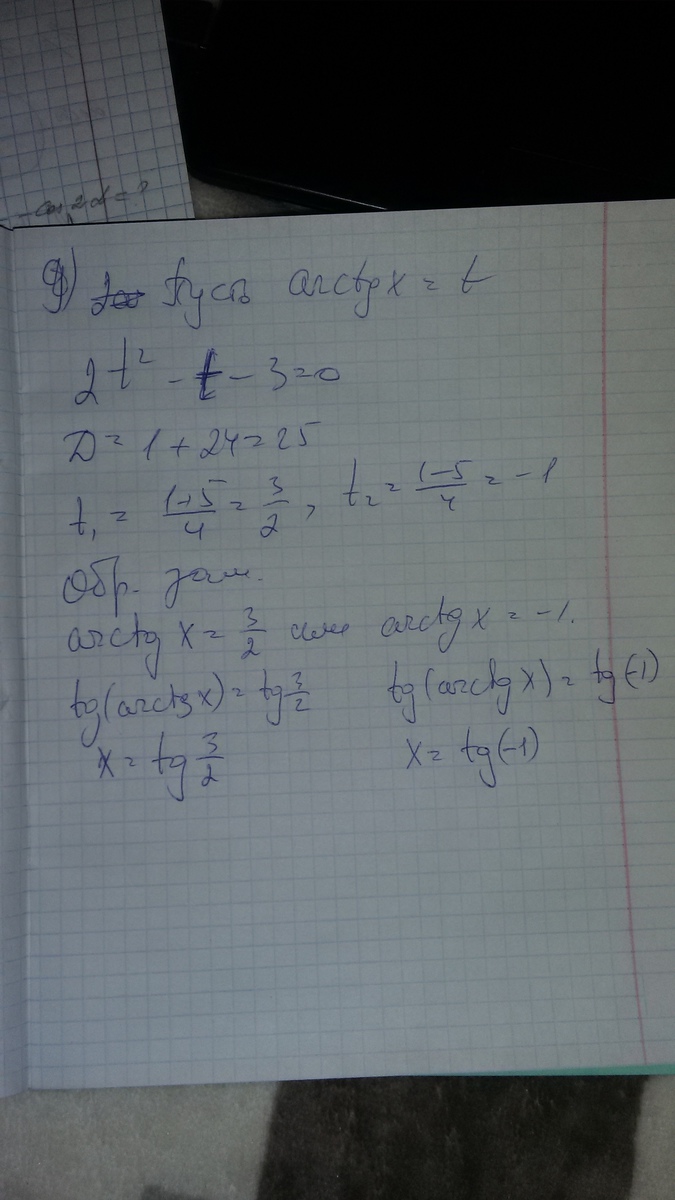 - cos 2α = ?
g) Пусть arctg x = t
2t² - t - 3 = 0
D = 1 + 24 = 25
t₁ = (1+5)/4 = 3/2, t₂ = (1-5)/4 = -1
Обр. зам.
arctg x = 3/2 или arctg x = -1.
tg(arctg x) = tg 3/2 tg(arctg x) = tg(-1)
x = tg 3/2 x = tg(-1)